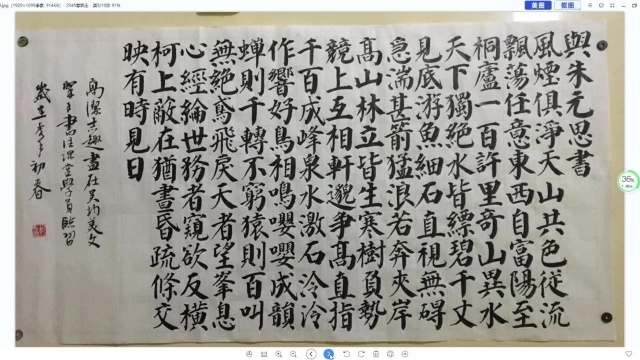 .jpg (1920×1095像素, 914KB) - 2345看图王 - 第5/10张 91%
美图 抠图
與朱元思書
風煙俱淨天山共色從流
飄蕩任意東西自富陽至
桐廬一百許里奇山異水
天下獨絕水皆縹碧千丈
見底游魚細石直視無礙
急湍甚箭猛浪若奔夾岸
高山林立皆生寒樹負勢
競上互相軒邈爭高直指
千百成峰泉水激石泠泠
作響好鳥相鳴嚶嚶成韻
蟬則千轉不窮猿則百叫
無絕鳶飛戾天者望峯息
心經綸世務者窺欲反橫
柯上蔽在猶晝昏疏條交
映有時見日
高潔志趣盡在吳均美文
書法課堂學員臨習
歲在初春
36%